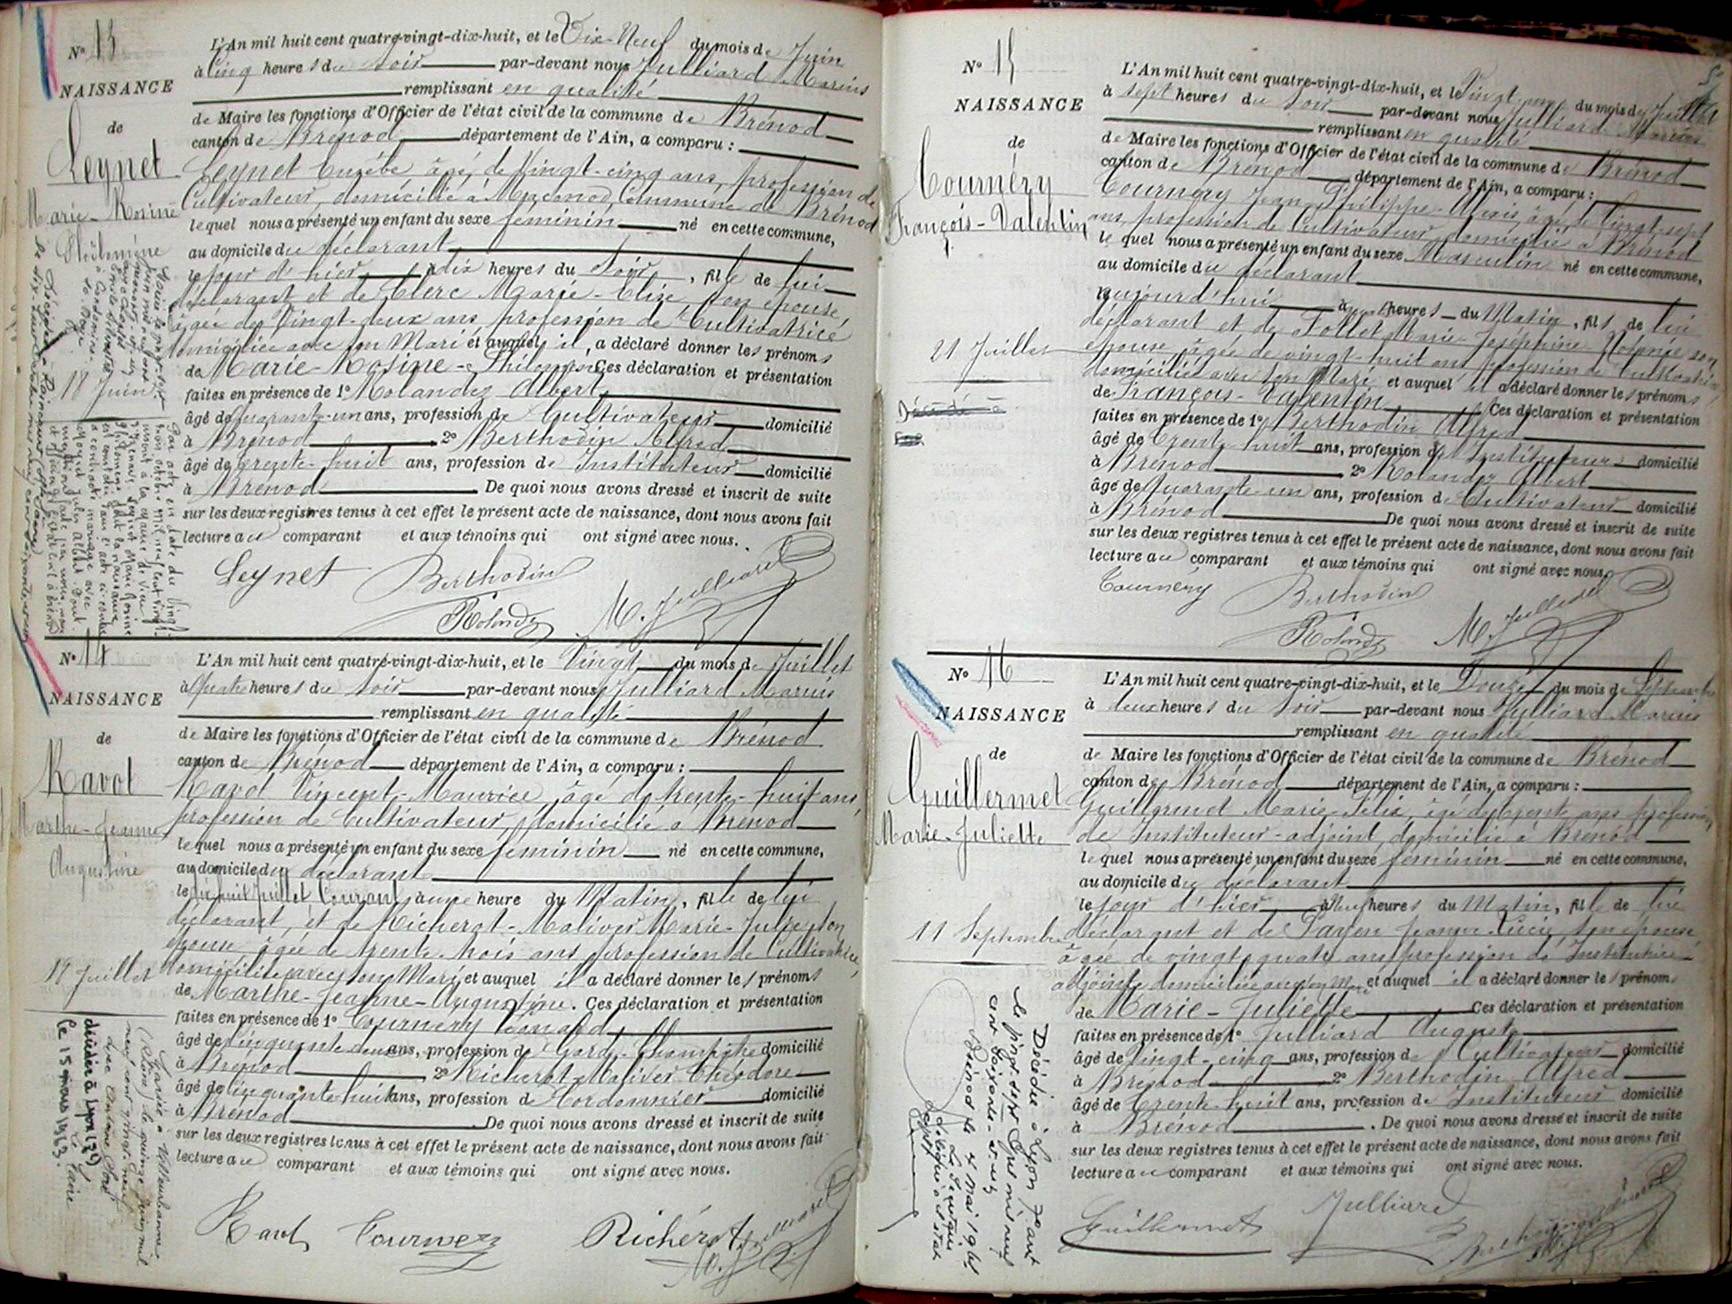 N° 13
NAISSANCE
de
Leynet
Marie-Rosine
Philomène
18 Juin
L'An mil huit cent quatre-vingt-dix-huit, et le Dix-Neuf du mois de Juin
à Cinq heures du Soir par-devant nous Julliard Marius
remplissant en qualité
de Maire les fonctions d'Officier de l'état civil de la commune de Brénod
canton de Brénod département de l'Ain, a comparu :
Leynet Eusèbe âgé de Vingt-cinq ans, profession de
Cultivateur, domicilié à Macconod, Commune de Brénod
lequel nous a présenté un enfant du sexe féminin né en cette commune,
au domicile du déclarant
le jour d'hier à dix heures du Soir, fille de lui
déclarant et de Clerc Marie-Elise, son épouse,
âgée de Vingt-deux ans, profession de Cultivatrice
domiciliée avec son Mari et auquel il a déclaré donner les prénoms
de Marie-Rosine-Philomène Ces déclaration et présentation
faites en présence de 1° Rolandez Albert
âgé de quarante-un ans, profession de Cultivateur domicilié
à Brénod 2° Berthodin Alfred
âgé de trente-huit ans, profession de Instituteur domicilié
à Brénod De quoi nous avons dressé et inscrit de suite
sur les deux registres tenus à cet effet le présent acte de naissance, dont nous avons fait
lecture au comparant et aux témoins qui ont signé avec nous.
Leynet Berthodin
Rolandez M. Julliard
N° 14
NAISSANCE
de
Ravot
Marthe-Jeanne
Augustine
18 Juillet
décédée à Lyon (3e)
le 15 mars 1963.
L'An mil huit cent quatre-vingt-dix-huit, et le Vingt du mois de Juillet
à Quatre heures du Soir par-devant nous Julliard Marius
remplissant en qualité
de Maire les fonctions d'Officier de l'état civil de la commune de Brénod
canton de Brénod département de l'Ain, a comparu :
Ravot Vincent-Maurice, âgé de trente-huit ans,
profession de Cultivateur, domicilié à Brénod
lequel nous a présenté un enfant du sexe féminin né en cette commune,
au domicile du déclarant
le dix huit Juillet Courant, à une heure du Matin, fille de lui
déclarant, et de Richerot-Malivier Marie-Julie, son
épouse âgée de trente-trois ans profession de Cultivatrice,
domiciliée avec son Mari et auquel il a déclaré donner les prénoms
de Marthe-Jeanne-Augustine. Ces déclaration et présentation
faites en présence de 1° Tournery
âgé de Cinquante deux ans, profession de Garde-Champêtre domicilié
à Brénod 2° Richerot-Malivier Théodore
âgé de Cinquante huit ans, profession de Cordonnier domicilié
à Brénod De quoi nous avons dressé et inscrit de suite
sur les deux registres tenus à cet effet le présent acte de naissance, dont nous avons fait
lecture au comparant et aux témoins qui ont signé avec nous.
Ravot Tournery Richerot
M. Julliard
N° 15
NAISSANCE
de
Tournery
François-Valentin
21 Juillet
L'An mil huit cent quatre-vingt-dix-huit, et le Vingt-un du mois de Juillet
à Sept heures du Soir par-devant nous Julliard Marius
remplissant en qualité
de Maire les fonctions d'Officier de l'état civil de la commune de Brénod
canton de Brénod département de l'Ain, a comparu :
Tournery Jean-Philippe âgé de Vingt-sept
ans, profession de Cultivateur, domicilié à Brénod
lequel nous a présenté un enfant du sexe Masculin né en cette commune,
au domicile du déclarant
aujourd'hui à heures du Matin, fils de lui
déclarant et de Follet Marie-Joséphine son
épouse, âgée de vingt-huit ans profession de Cultivatrice
domiciliée avec son Mari, et auquel il a déclaré donner les prénoms
de François-Valentin Ces déclaration et présentation
faites en présence de 1° Berthodin Alfred
âgé de trente-huit ans, profession de Instituteur domicilié
à Brénod 2° Rolandez Albert
âgé de quarante-un ans, profession de Cultivateur domicilié
à Brénod De quoi nous avons dressé et inscrit de suite
sur les deux registres tenus à cet effet le présent acte de naissance, dont nous avons fait
lecture au comparant et aux témoins qui ont signé avec nous.
Tournery Berthodin
Rolandez M. Julliard
N° 16
NAISSANCE
de
Guillermet
Marie-Juliette
11 Septembre
Décédée à Lyon
L'An mil huit cent quatre-vingt-dix-huit, et le Douze du mois de Septembre
à deux heures du Soir par-devant nous Julliard Marius
remplissant en qualité
de Maire les fonctions d'Officier de l'état civil de la commune de Brénod
canton de Brénod département de l'Ain, a comparu :
Guillermet Marie âgé de trente ans profession
de Instituteur-adjoint, domicilié à Brénod
lequel nous a présenté un enfant du sexe féminin né en cette commune,
au domicile du déclarant
le jour d'hier à heures du Matin, fille de lui
déclarant et de Payen Jeanne-Lucie son épouse
âgée de vingt-quatre ans profession de Institutrice
adjointe domiciliée avec son Mari et auquel il a déclaré donner les prénoms
de Marie-Juliette Ces déclaration et présentation
faites en présence de 1° Julliard Auguste
âgé de Vingt-cinq ans, profession de Cultivateur domicilié
à Brénod 2° Berthodin Alfred
âgé de trente-huit ans, profession de Instituteur domicilié
à Brénod. De quoi nous avons dressé et inscrit de suite
sur les deux registres tenus à cet effet le présent acte de naissance, dont nous avons fait
lecture au comparant et aux témoins qui ont signé avec nous.
Guillermet Julliard
Berthodin